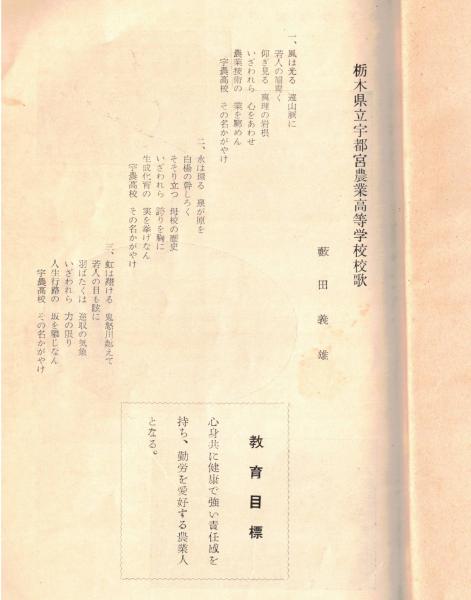 栃木県立宇都宮農業高等学校校歌
藪田義雄
一、風は光る 遠山脈に
若人の眉青く
仰ぎ見る 真理の岩根
いざわれら 心をあわせ
農業技術の 業を励めん
宇農高校 その名かがやけ
二、水は環る 泉が原を
白楊の幹しろく
そそり立つ 母校の歴史
いざわれら 誇りを胸に
生成化育の 実を挙げなん
宇農高校 その名かがやけ
三、虹は翔ける 鬼怒川越えて
若人の目も眩に
羽ばたくは 進取の気象
いざわれら 力の限り
人生行路の 坂を攀じなん
宇農高校 その名かがやけ
教育目標
心身共に健康で強い責任感を
持ち、勤労を愛好する農業人
となる。